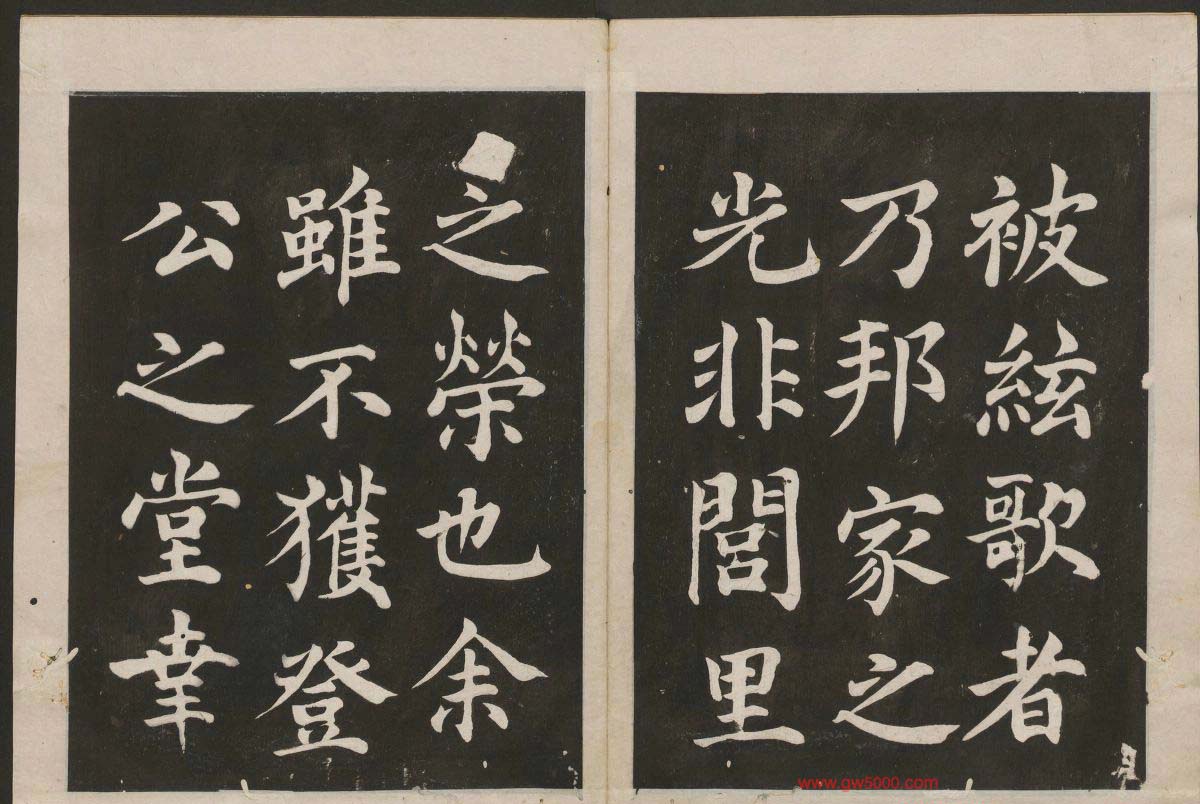 被絃歌者
乃邦家之
光非閭里
之榮也余
雖不獲登
公之堂幸
www.gw5000.com